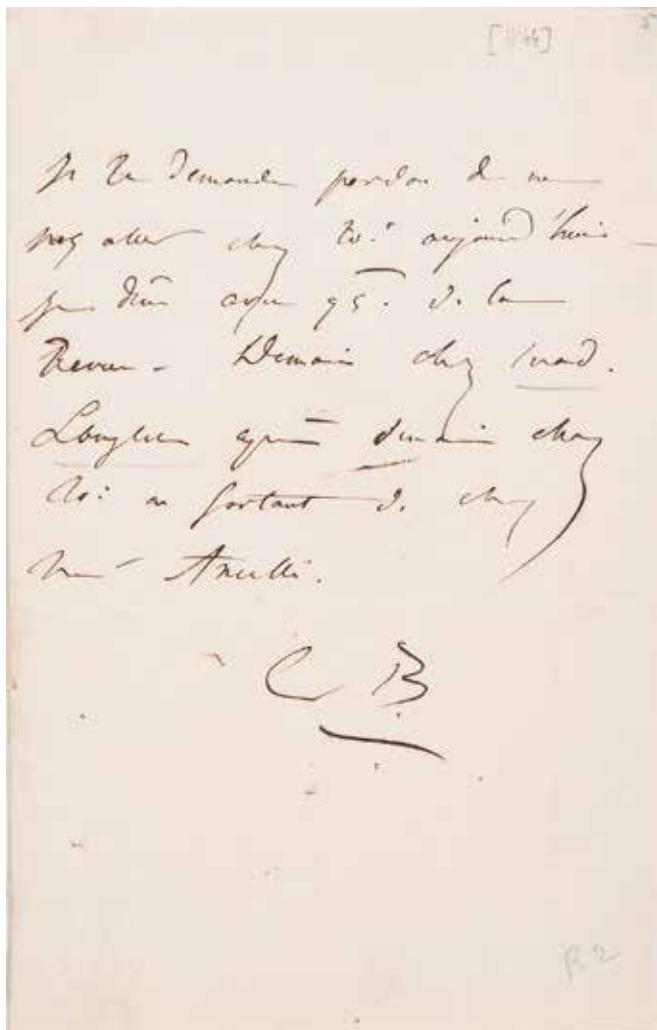 [844]
5
Je te demande pardon de ne
pas aller chez toi aujourd'hui –
je dîne avec qq. de la
Revue – Demain chez Mad.
Longlieu après demain chez
toi en sortant de chez
Me Ancelle.
C B
R2